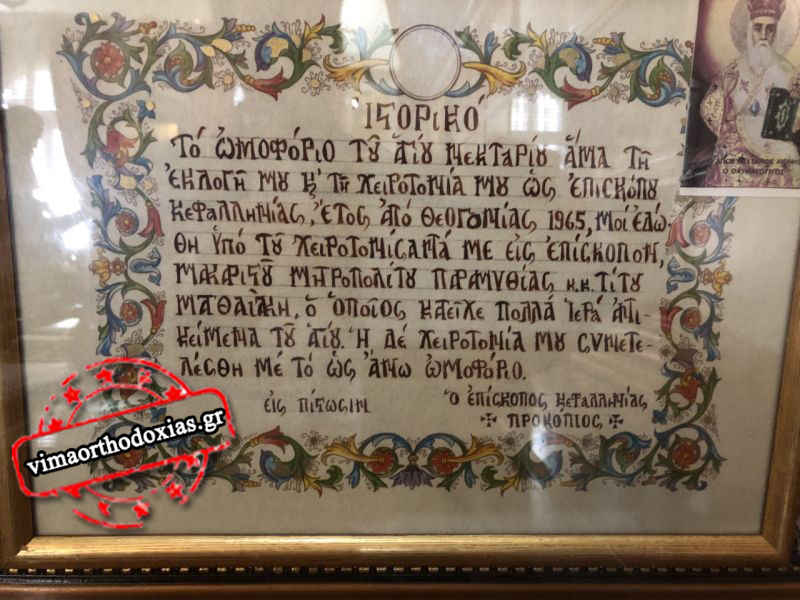 ΙΣΤΟΡΙΚΌ
ΤΌ ὨΜΟΦΌΡΙΟ ΤΟΥ͂ ἉΓΊΟΥ ΝΕΚΤΑΡΊΟΥ ἍΜΑ ΤΗ͂
ἘΚΛΟΓΗ͂ ΜΟΥ Κ' ΤΗ͂ ΧΕΙΡΟΤΟΝΊΑ ΜΟΥ ὩΣ ἘΠΙΣΚΌΠΟΥ
ΚΕΦΑΛΛΗΝΊΑΣ, ἜΤΟΣ ἈΠΌ ΘΕΟΓΟΝΊΑΣ 1965, ΜΟΙ ἘΔΌ-
ΘΗ ὙΠΌ ΤΟΥ͂ ΧΕΙΡΟΤΟΝΉΣΑΝΤΆ ΜΕ ΕΙΣ ἘΠΊΣΚΟΠΟΝ,
ΜΑΚΑΡΙΣΤΟΥ͂ ΜΗΤΡΟΠΟΛΊΤΟΥ ΠΑΡΑΜΥΘΊΑΣ Κ.Κ. ΤΊΤΟΥ
ΜΑΤΘΑΙΆΚΗ, Ὁ ὉΠΟΙ͂ΟΣ ΚΑΤΕΙ͂ΧΕ ΠΟΛΛΆ ἹΕΡΆ ἈΝΤΙ-
ΚΕΊΜΕΝΑ ΤΟΥ͂ ἉΓΊΟΥ. Ἡ ΔΈ ΧΕΙΡΟΤΟΝΊΑ ΜΟΥ ΣΥΝΕΤΕ-
ΛΈΣΘΗ ΜΈ ΤΌ ὩΣ ἌΝΩ ὨΜΟΦΌΡΙΟ.
ΕΙΣ ΠΊΣΤΩΣΙΝ
Ὁ ἘΠΊΣΚΟΠΟΣ ΚΕΦΑΛΛΗΝΊΑΣ
✠ ΠΡΟΚΌΠΙΟΣ ✠
vimaorthodoxias.gr
Ο ΘΑΥΜΑΤΟΥΡΓΟΣ